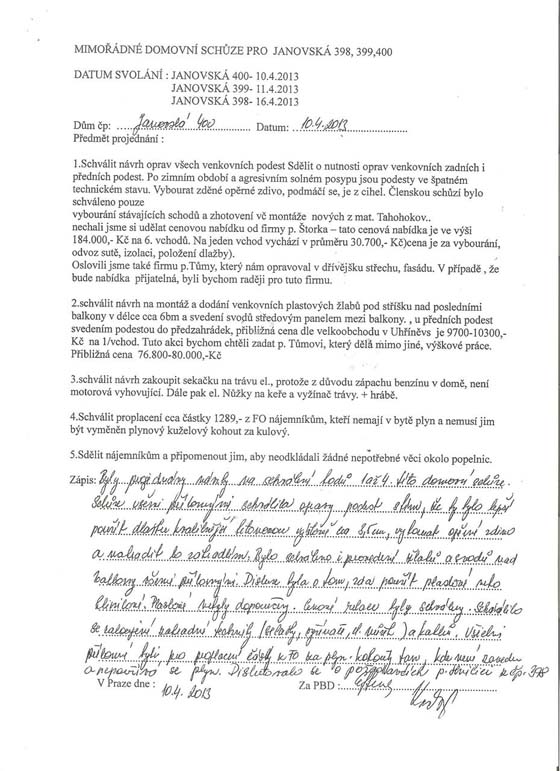 MIMOŘÁDNÉ DOMOVNÍ SCHŮZE PRO JANOVSKÁ 398, 399,400
DATUM SVOLÁNÍ : JANOVSKÁ 400- 10.4.2013
JANOVSKÁ 399- 11.4.2013
JANOVSKÁ 398- 16.4.2013
Dům čp: Janovská 400 Datum: 10.4.2013
Předmět projednání :
1.Schválit návrh oprav všech venkovních podest Sdělit o nutnosti oprav venkovních zadních i
předních podest. Po zimním období a agresivním solném posypu jsou podesty ve špatném
technickém stavu. Vybourat zděné opěrné zdivo, podmáčí se, je z cihel. Členskou schůzí bylo
schváleno pouze
vybourání stávajících schodů a zhotovení vč montáže nových z mat. Tahohokov..
nechali jsme si udělat cenovou nabídku od firmy p. Štorka – tato cenová nabídka je ve výši
184.000,- Kč na 6. vchodů. Na jeden vchod vychází v průměru 30.700,- Kč)cena je za vybourání,
odvoz sutě, izolaci, položení dlažby).
Oslovili jsme také firmu p.Tůmy, který nám opravoval v dřívějšku střechu, fasádu. V případě , že
bude nabídka přijatelná, byli bychom raději pro tuto firmu.
2.schválit návrh na montáž a dodání venkovních plastových žlabů pod stříšku nad posledními
balkony v délce cca 6bm a svedení svodů středovým panelem mezi balkony. , u předních podest
svedením podestou do předzahrádek, přibližná cena dle velkoobchodu v Uhříněvs je 9700-10300,-
Kč na 1/vchod. Tuto akci bychom chtěli zadat p. Tůmovi, který dělá mimo jiné, výškové práce.
Přibližná cena 76.800-80.000,-Kč
3.schválit návrh zakoupit sekačku na trávu el., protože z důvodu zápachu benzínu v domě, není
motorová vyhovující. Dále pak el. Nůžky na keře a vyžínač trávy. + hrábě.
4.Schválit proplacení cca částky 1289,- z FO nájemníkům, kteří nemají v bytě plyn a nemusí jim
být vyměněn plynový kuželový kohout za kulový.
5.Sdělit nájemníkům a připomenout jim, aby neodkládali žádné nepotřebné věci okolo popelnic.
Zápis: Byly projednány návrhy na schválení bodů 1 až 4 této domovní schůze.
Schůze všemi přítomnými schválila opravy podest s tím, že by bylo lepší
použít dlažbu kvalitnější cca 3,5 cm, vybourat opěrné zdivo
a nahradit ho zábradlím. Bylo schváleno i provedení a svodů nad
balkony všemi přítomnými. Diskuze byla o tom, zda použít nebo
nebyly doporučeny. relace byly schváleny. Schválilo
se zakoupení zahradní techniky (sekačky, vyžínače, el. nůžek) a Všichni
přítomni byli pro proplacení částky z FO na plyn. kohouty tam, kde není zaveden
a nepoužívá se plyn. Diskutovalo se o p.
V Praze dne : 10.4.2013 Za PBD :